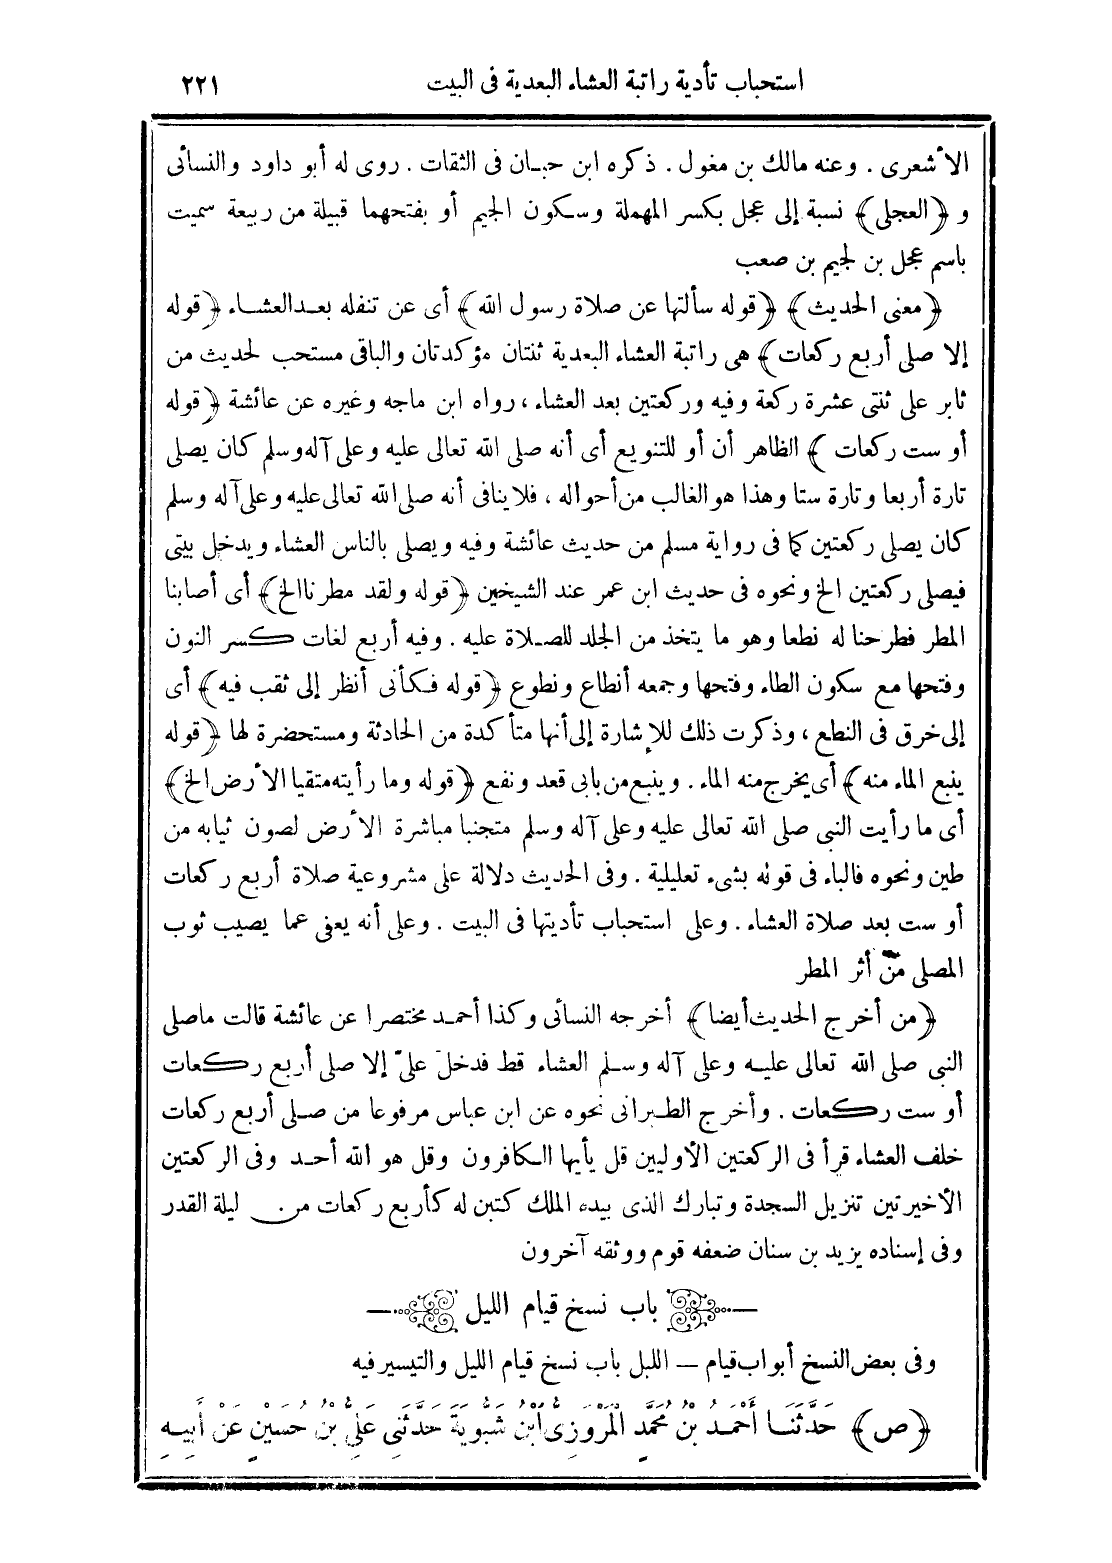 استحباب تأدية راتبة العشاء البعدية فى البيت ٢٢١
الأشعرى . وعنه مالك بن مغول . ذكره ابن حبان فى الثقات . روى له أبو داود والنسائى
و ﴿العجلى﴾ نسبة إلى عجل بكسر المهملة وسكون الجيم أو بفتحهما قبيلة من ربيعة سميت
باسم عجل بن لجيم بن صعب
﴿معنى الحديث﴾ ﴿قوله سألتها عن صلاة رسول الله﴾ أى عن تنفله بعد العشاء ﴿قوله
إلا صلى أربع ركعات﴾ هى راتبة العشاء البعدية ثنتان مؤكدتان والباقى مستحب لحديث من
ثابر على ثنتى عشرة ركعة وفيه وركعتين بعد العشاء، رواه ابن ماجه وغيره عن عائشة ﴿قوله
أو ست ركعات﴾ الظاهر أن أو للتنويع أى أنه صلى الله تعالى عليه وعلى آله وسلم كان يصلى
تارة أربعا وتارة ستا وهذا هو الغالب من أحواله ، فلا ينافى أنه صلى الله تعالى عليه وعلى آله وسلم
كان يصلى ركعتين كما فى رواية مسلم من حديث عائشة وفيه ويصلى بالناس العشاء ويدخل بيتى
فيصلى ركعتين الخ ونحوه فى حديث ابن عمر عند الشيخين ﴿قوله ولقد مطرنا الخ﴾ أى أصابنا
المطر فطرحنا له نطعا وهو ما يتخذ من الجلد للصلاة عليه . وفيه أربع لغات كسر النون
وفتحها مع سكون الطاء وفتحها وجمعه أنطاع ونطوع ﴿قوله فكأنى أنظر إلى ثقب فيه﴾ أى
إلى خرق فى النطع ، وذكرت ذلك للإشارة إلى أنها متأكدة من الحادثة ومستحضرة لها ﴿قوله
ينبع الماء منه﴾ أى يخرج منه الماء . وينبع من بابى قعد ونفع ﴿قوله وما رأيته متقيا الأرض الخ﴾
أى ما رأيت النبى صلى الله تعالى عليه وعلى آله وسلم متجنبا مباشرة الأرض لصون ثيابه من
طين ونحوه فالباء فى قوله بشىء تعليلية . وفى الحديث دلالة على مشروعية صلاة أربع ركعات
أو ست بعد صلاة العشاء . وعلى استحباب تأديتها فى البيت . وعلى أنه يعفى عما يصيب ثوب
المصلى من أثر المطر
﴿من أخرج الحديث أيضا﴾ أخرجه النسائى وكذا أحمد مختصرا عن عائشة قالت ماصلى
النبى صلى الله تعالى عليه وعلى آله وسلم العشاء قط فدخل علىّ إلا صلى أربع ركعات
أو ست ركعات . وأخرج الطبرانى نحوه عن ابن عباس مرفوعا من صلى أربع ركعات
خلف العشاء قرأ فى الركعتين الأوليين قل يأيها الكافرون وقل هو الله أحد وفى الركعتين
الأخيرتين تنزيل السجدة وتبارك الذى بيده الملك كتبن له كأربع ركعات من ليلة القدر
وفى إسناده يزيد بن سنان ضعفه قوم ووثقه آخرون
باب نسخ قيام الليل
وفى بعض النسخ أبواب قيام — الليل باب نسخ قيام الليل والتيسير فيه
﴿ص﴾ حَدَّثَنَا أَحْمَدُ بْنُ مُحَمَّدٍ الْمَرْوَزِىُّ ابْنُ شَبُّويَةَ حَدَّثَنِى عَلِىُّ بْنُ حُسَيْنٍ عَنْ أَبِيهِ